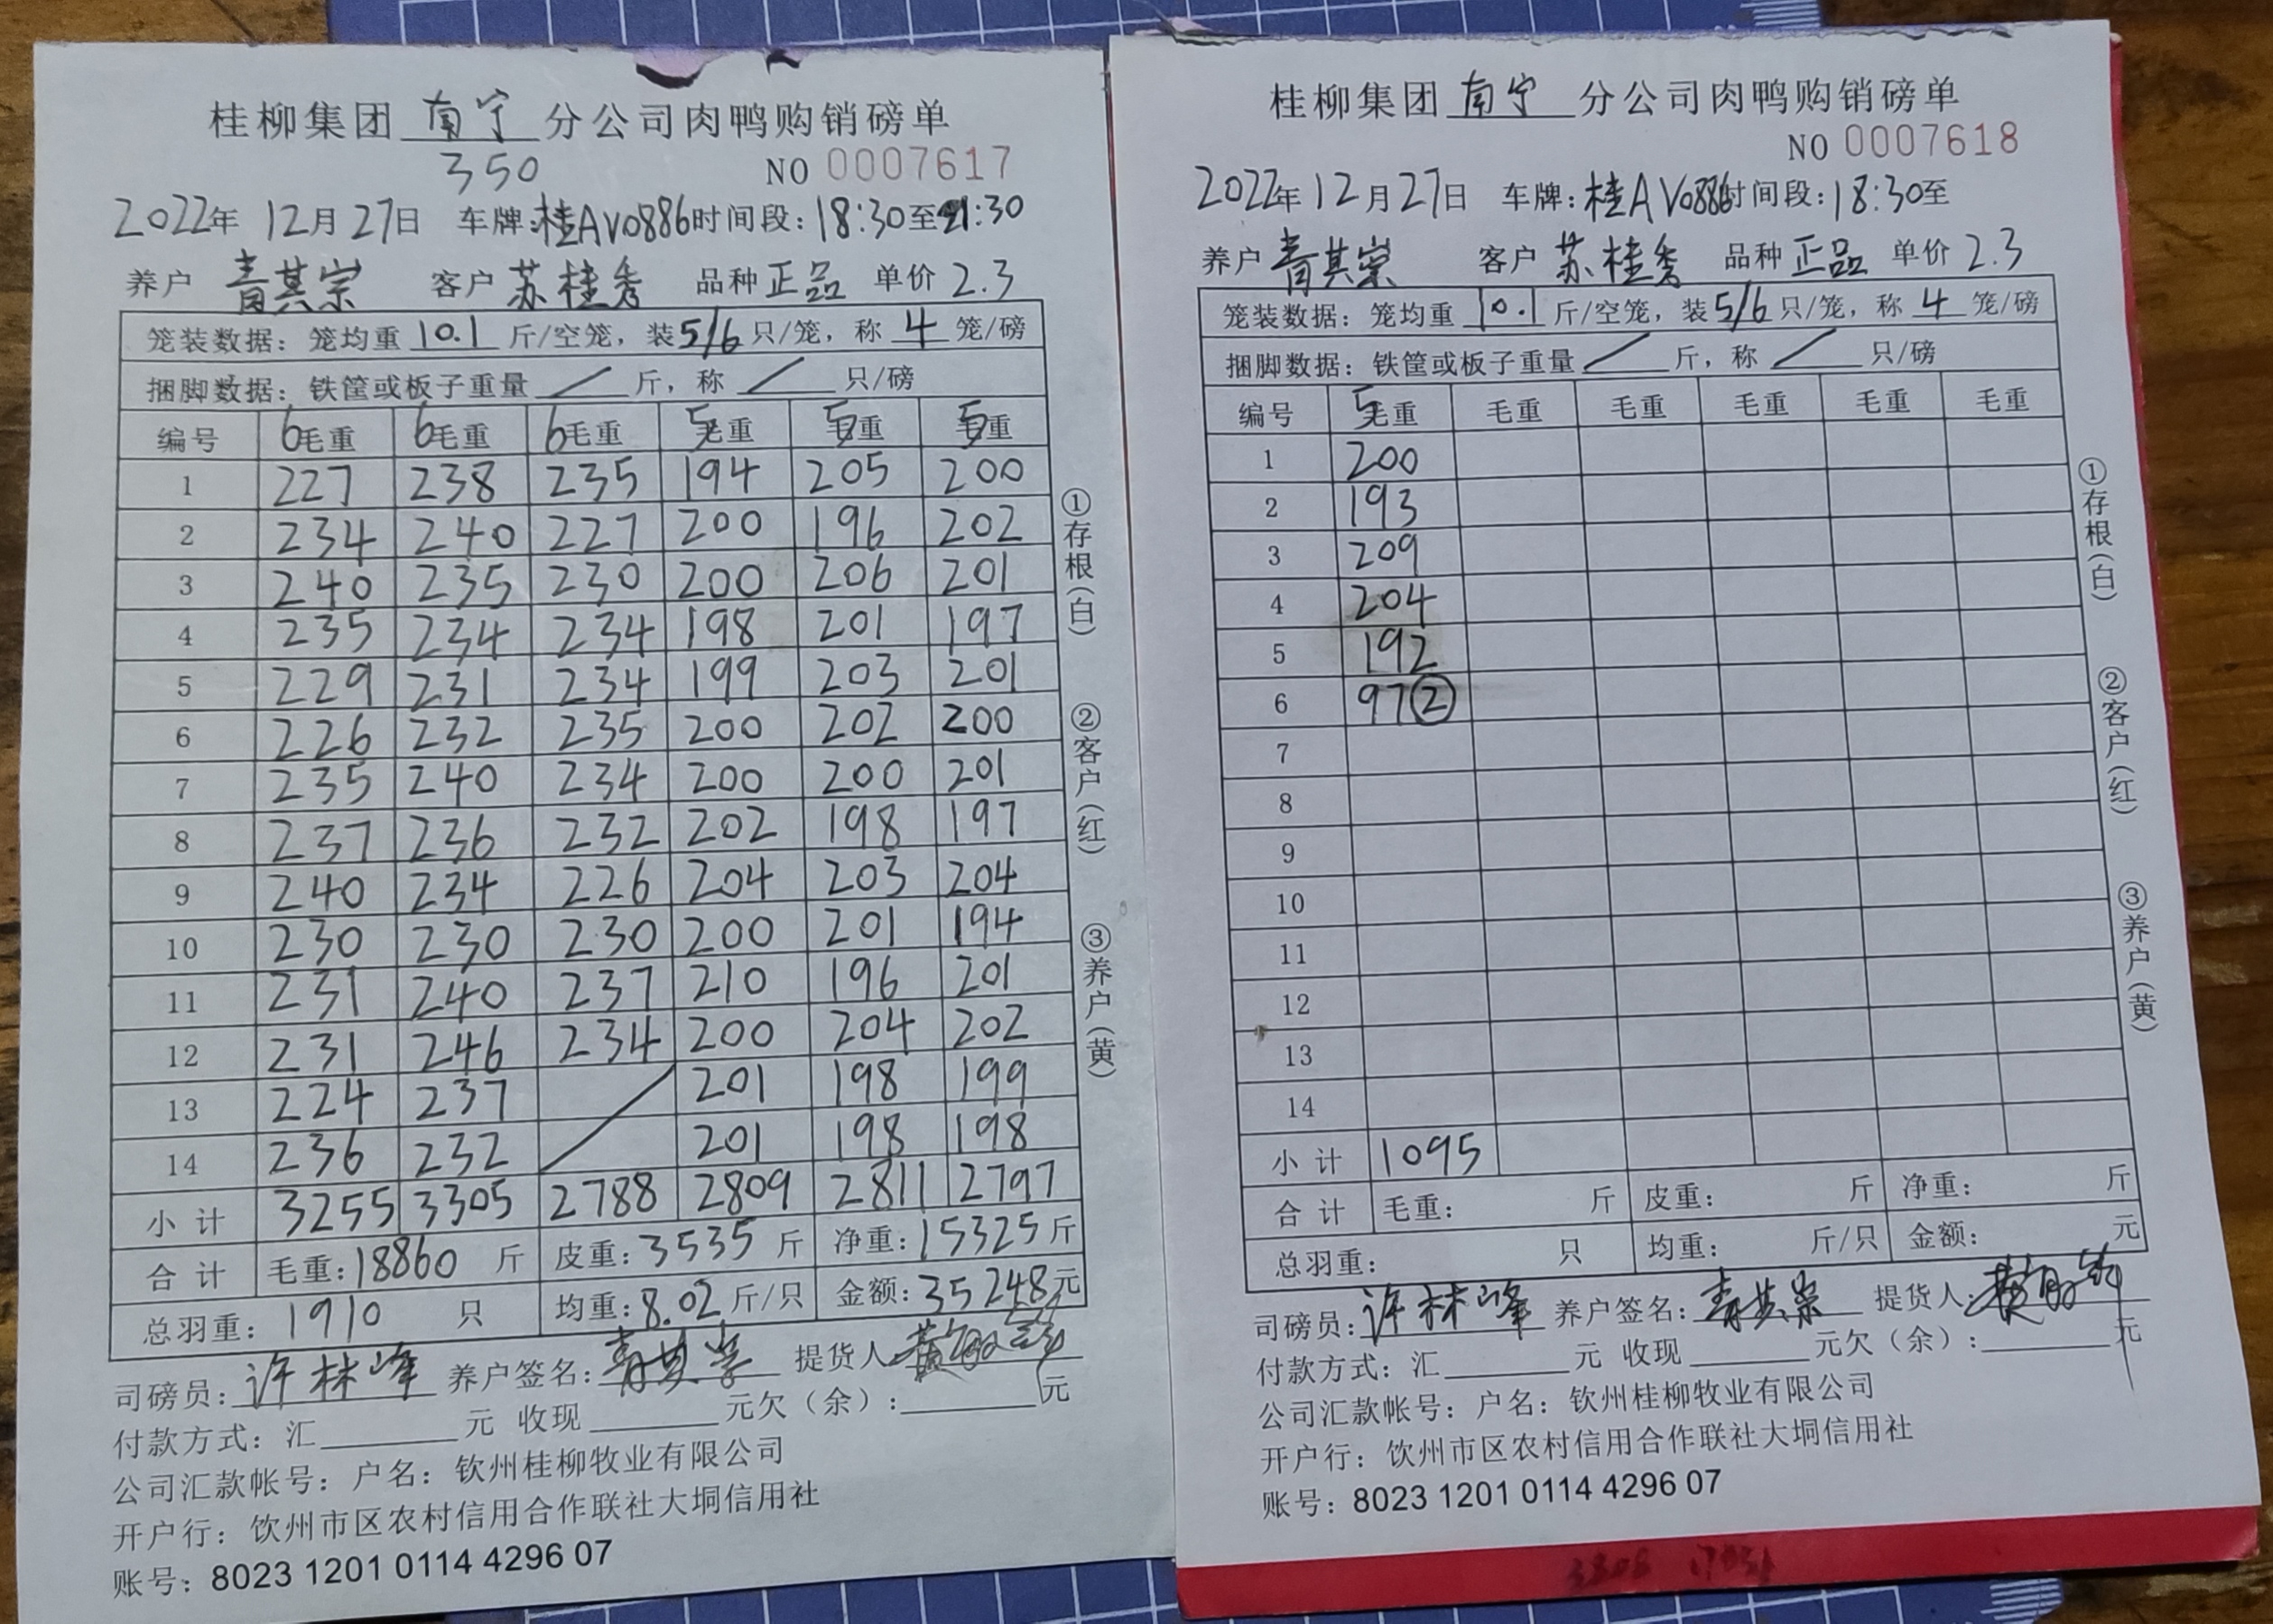 桂柳集团 南宁 分公司肉鸭购销磅单
350 NO 0007617
2022年 12月27日 车牌:桂AV0886 时间段:18:30至21:30
养户 青其宗 客户 苏桂秀 品种 正品 单价 2.3
笼装数据:笼均重 10.1 斤/空笼,装5/6只/笼,称 4 笼/磅
捆脚数据:铁筐或板子重量 / 斤,称 / 只/磅
编号 6毛重 6毛重 6毛重 5毛重 5毛重 5毛重
1 227 238 235 194 205 200
2 234 240 227 200 196 202
3 240 235 230 200 206 201
4 235 234 234 198 201 197
5 229 231 234 199 203 201
6 226 232 235 200 202 200
7 235 240 234 200 200 201
8 237 236 232 202 198 197
9 240 234 226 204 203 204
10 230 230 230 200 201 194
11 231 240 237 210 196 201
12 231 246 234 200 204 202
13 224 237 201 198 199
14 236 232 201 198 198
小计 3255 3305 2788 2809 2811 2797
合计 毛重:18860 斤 皮重:3535 斤 净重:15325斤
总羽重:1910 只 均重:8.02斤/只 金额:35248元
司磅员:许林峰 养户签名:青其宗 提货人:
付款方式:汇 元 收现 元欠(余): 元
公司汇款帐号:户名:钦州桂柳牧业有限公司
开户行:钦州市区农村信用合作联社大垌信用社
账号:8023 1201 0114 4296 07
①存根(白)
②客户(红)
③养户(黄)
桂柳集团 南宁 分公司肉鸭购销磅单
NO 0007618
2022年 12月27日 车牌:桂AV0886时间段:18:30至
养户 青其宗 客户 苏桂秀 品种 正品 单价 2.3
笼装数据:笼均重 10.1 斤/空笼,装5/6只/笼,称 4 笼/磅
捆脚数据:铁筐或板子重量 / 斤,称 / 只/磅
编号 5毛重 毛重 毛重 毛重 毛重 毛重
1 200
2 193
3 209
4 204
5 192
6 97②
7
8
9
10
11
12
13
14
小计 1095
合计 毛重: 斤 皮重: 斤 净重: 斤
总羽重: 只 均重: 斤/只 金额: 元
司磅员:许林峰 养户签名:青其宗 提货人:
付款方式:汇 元 收现 元欠(余): 元
公司汇款帐号:户名:钦州桂柳牧业有限公司
开户行:钦州市区农村信用合作联社大垌信用社
账号:8023 1201 0114 4296 07
①存根(白)
②客户(红)
③养户(黄)